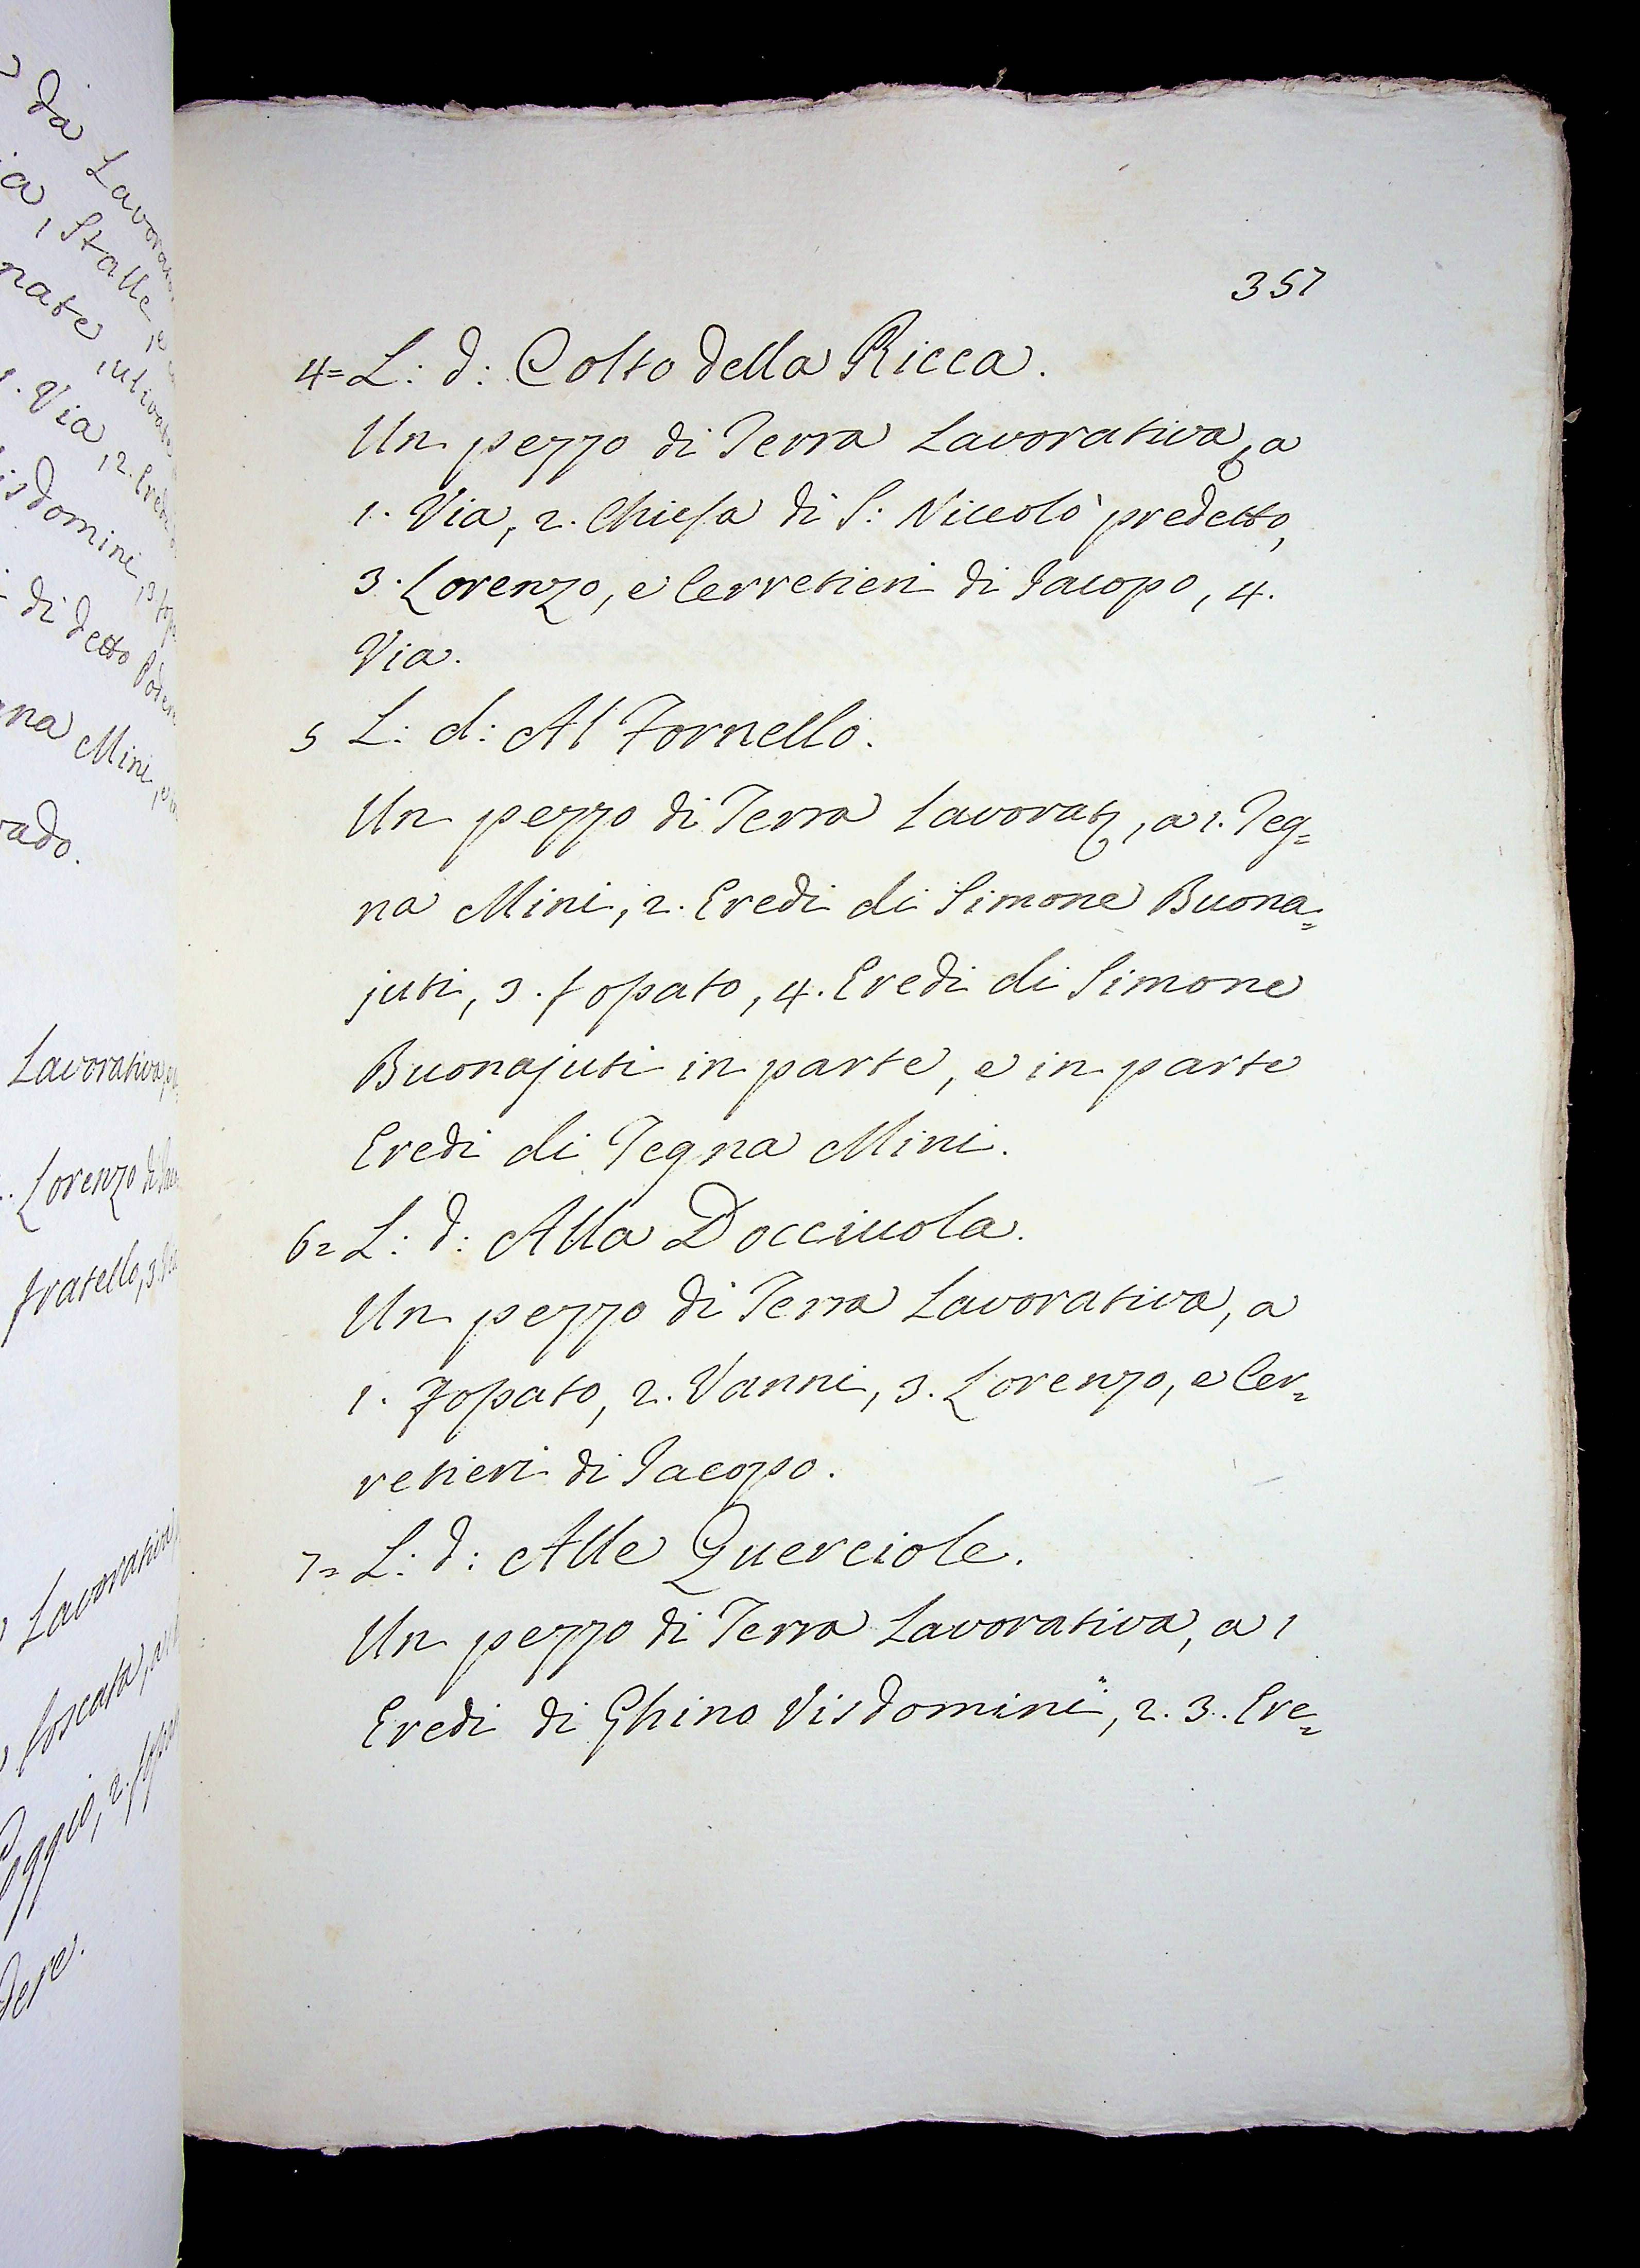 da Lavora
ia, Stalle, e
nate, uliva
1. Via, 2. Ere
isdomini, 3. fo
di detto Pode
na Mini, e
rado.
Lavorativa,
Lorenzo di
fratello, 3.
Lavorativa
boscata, a
oggio, 2. fos
dere.
357
4= L: d: Colto della Ricca.
Un pezzo di Terra Lavorativa, a
1. Via, 2. Chiesa di S: Niccolò predetto,
3. Lorenzo, e Cerretieri di Jacopo, 4.
Via.
5 L: d: Al Fornello.
Un pezzo di Terra Lavorat, a 1. Teg=
na Mini, 2. Eredi di Simone Buona=
juti, 3. fossato, 4. Eredi di Simone
Buonajuti in parte, e in parte
Eredi di Tegna Mini.
6= L: d: Alla Docciuola.
Un pezzo di Terra Lavorativa, a
1. Fossato, 2. Vanni, 3. Lorenzo, e Cer=
retieri di Jacopo.
7= L: d: Alle Querciole.
Un pezzo di Terra Lavorativa, a 1
Eredi di Ghino Visdomini, 2. 3. Ere=